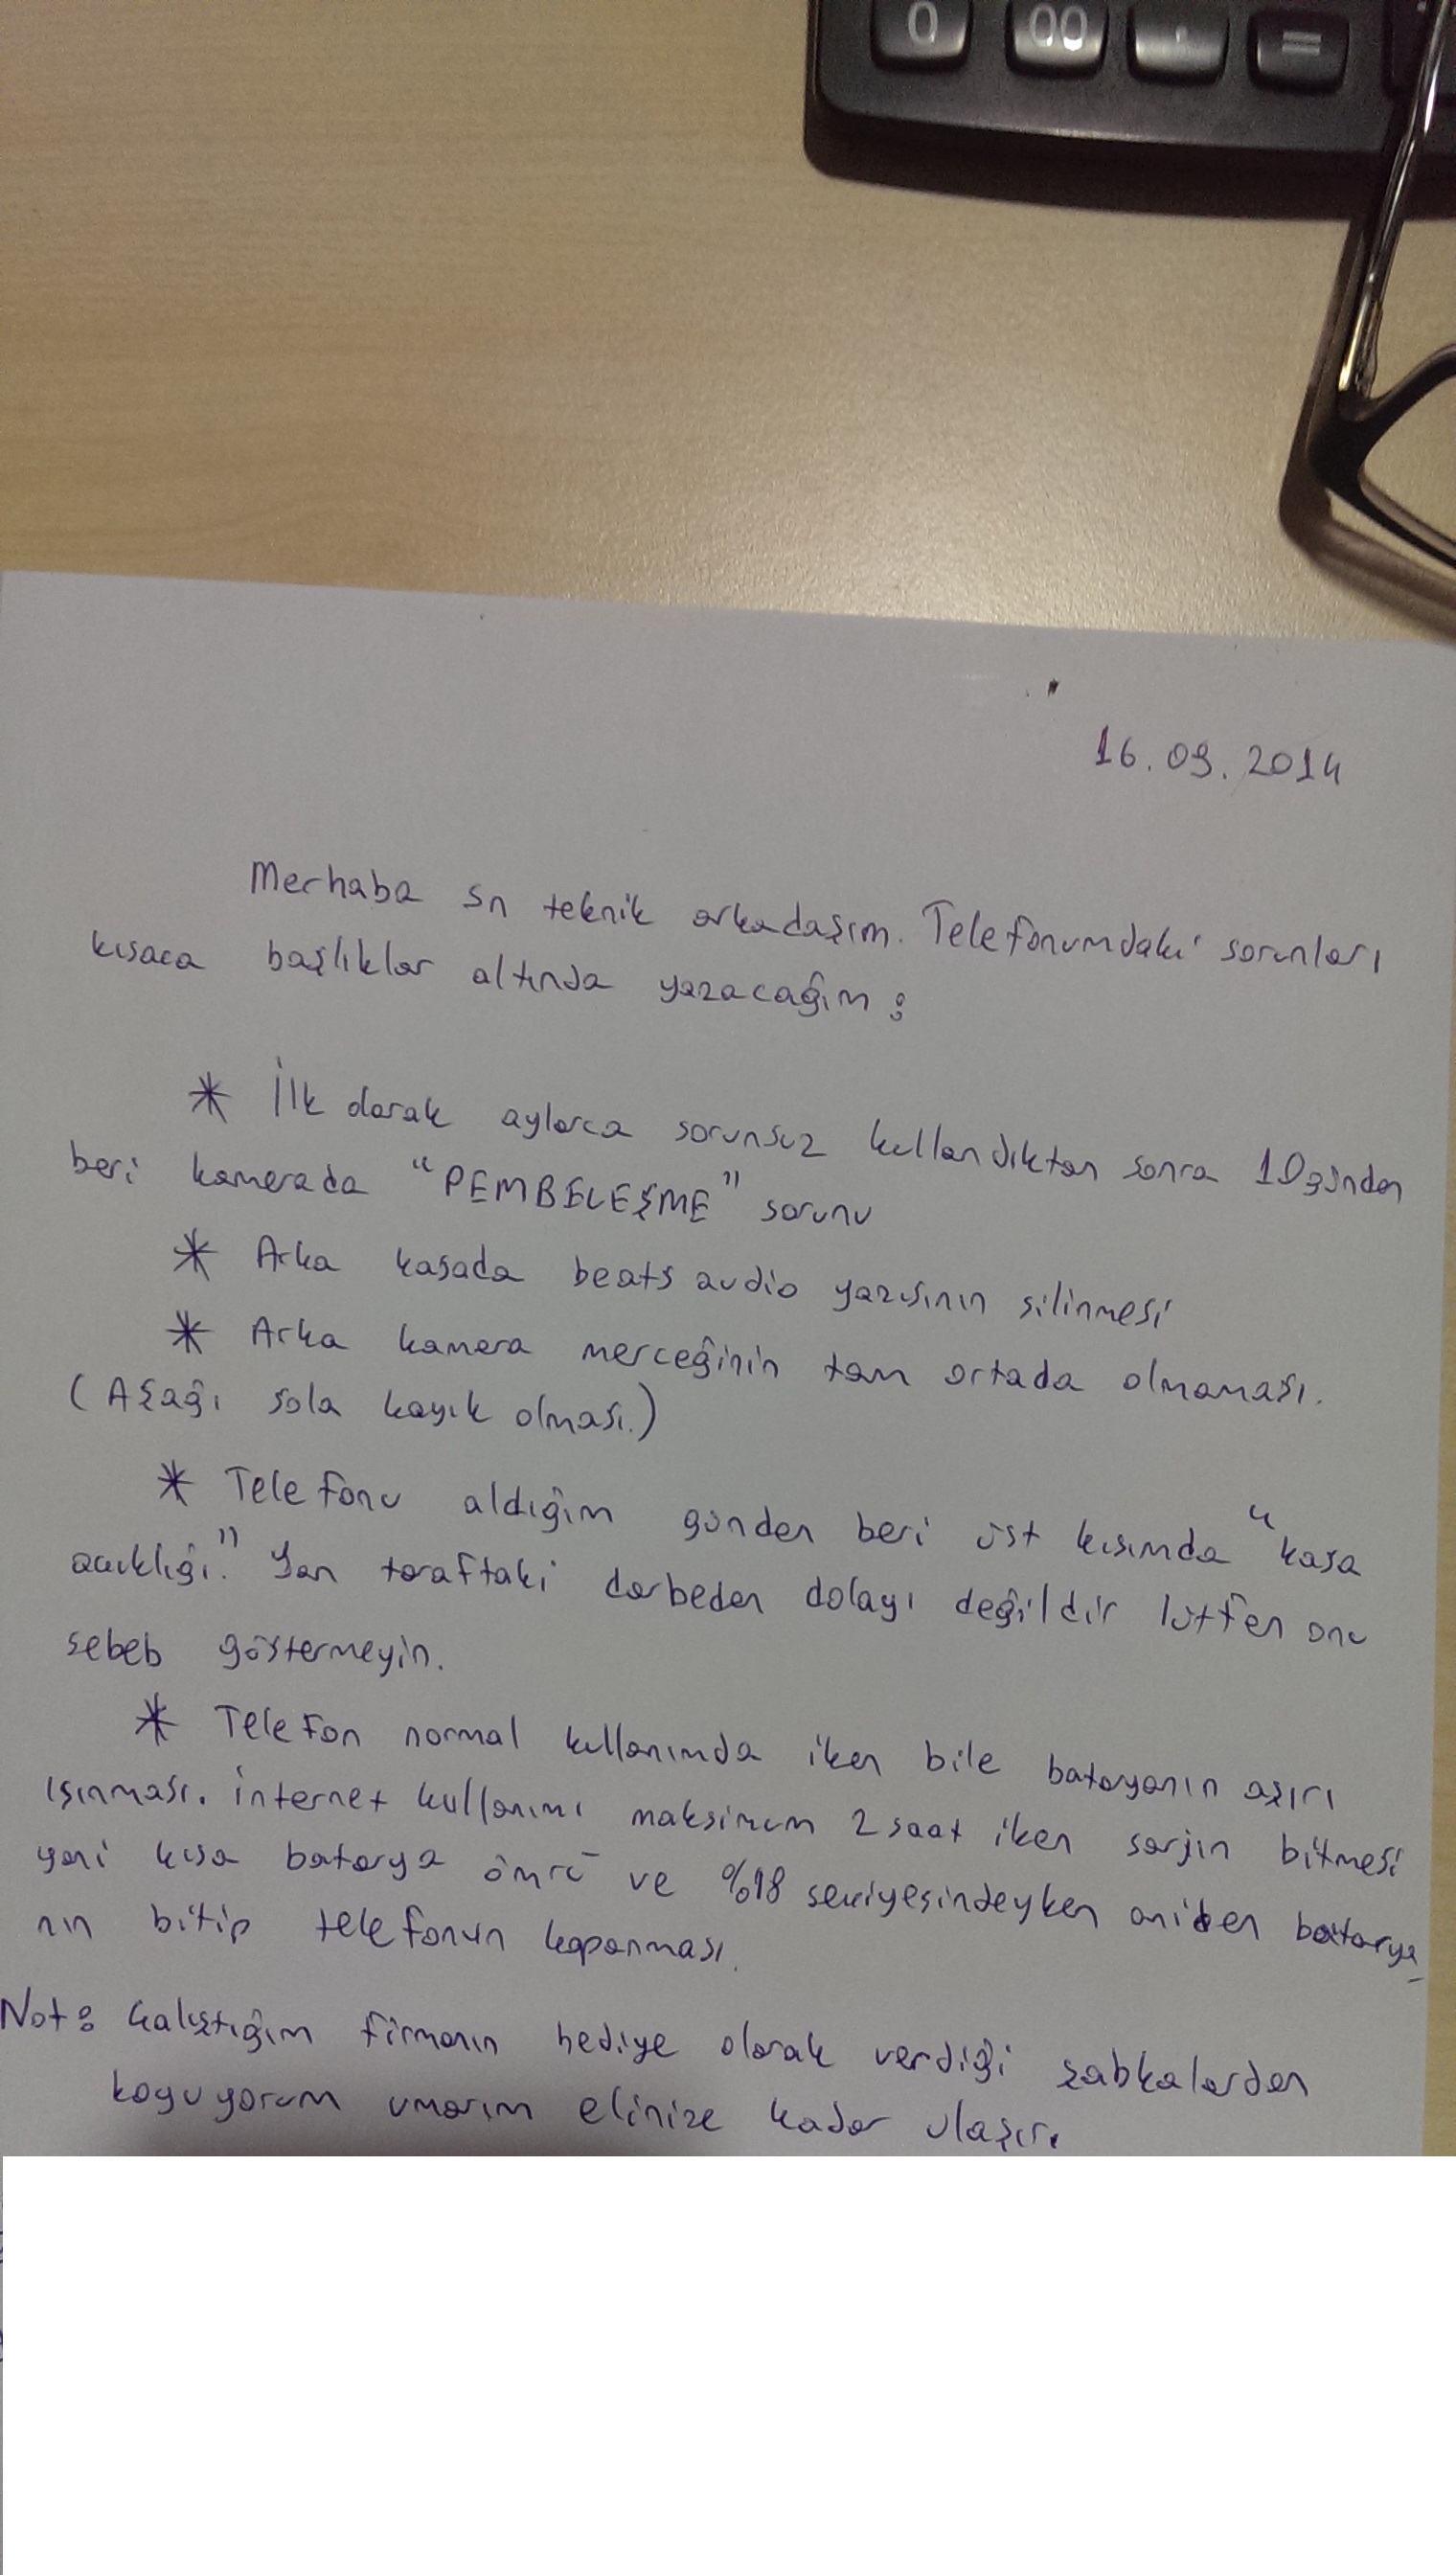 0 00 . =
16.09.2014
Merhaba sn teknik arkadaşım. Telefonumdaki sorunları
kısaca başlıklar altında yazacağım:
* İlk olarak aylarca sorunsuz kullandıktan sonra 10 günden
beri kamerada "PEMBELEŞME" sorunu
* Arka kasada beats audio yazısının silinmesi
* Arka kamera merceğinin tam ortada olmaması.
(Aşağı sola kayık olması.)
* Telefonu aldığım günden beri üst kısımda "kasa
açıklığı." Yan taraftaki darbeden dolayı değildir lütfen onu
sebeb göstermeyin.
* Telefon normal kullanımda iken bile bataryanın aşırı
ısınması. İnternet kullanımı maksimum 2 saat iken şarjın bitmesi
yani kısa batarya ömrü ve %18 seviyesindeyken aniden batarya
nın bitip telefonun kapanması.
Not: Çalıştığım firmanın hediye olarak verdiği şapkalardan
koyuyorum umarım elinize kadar ulaşır.